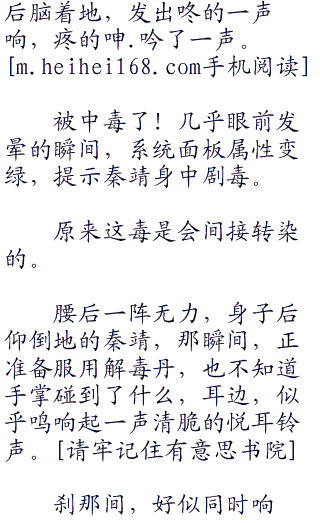 后脑着地，发出咚的一声
响，疼的呻.吟了一声。
[m.heihei168.com手机阅读]
被中毒了！几乎眼前发
晕的瞬间，系统面板属性变
绿，提示秦靖身中剧毒。
原来这毒是会间接转染
的。
腰后一阵无力，身子后
仰倒地的秦靖，那瞬间，正
准备服用解毒丹，也不知道
手掌碰到了什么，耳边，似
乎鸣响起一声清脆的悦耳铃
声。[请牢记住有意思书院]
刹那间，好似同时响